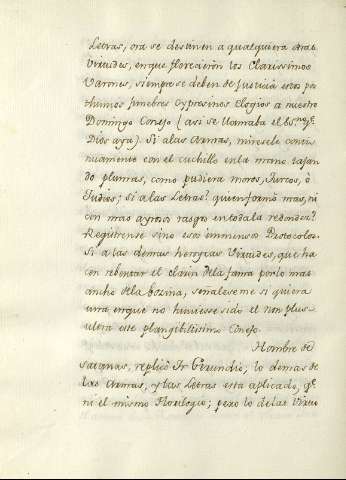 Letras, ora se destinen a qualquiera otras
Virtudes, en que florecieron los Clarissimos
Varones, siempre se deben de Justicia estos pos
thumos funebres cyprosinos elogios a nuestro
Domingo Conejo (asi se llamaba el Ess.no q.e
Dios aya). Si a las Armas, mirese le conti
nuamente con el cuchillo en la mano tajan
do plumas, como pudiera moros, Turcos, ò
Judios; si a las Letras? quien formò mas, ni
con mas ayrosos rasgos en toda la redondez?
Registrense sino esos immensos Protocolos.
Si a las demas heroycas Virtudes, que ha
cen rebentar el clarin de la fama por lo mas
ancho de la bozina, señaleseme si quiera
una en que no huviesse sido el non plus
ultra este plangibilissimo Conejo.
Hombre de
Satanas, replicò Fr. Gerundio, lo demas de
las Armas, y las Letras esta aplicado, q.e
ni el mismo Florilogio; pero lo de las Virtu